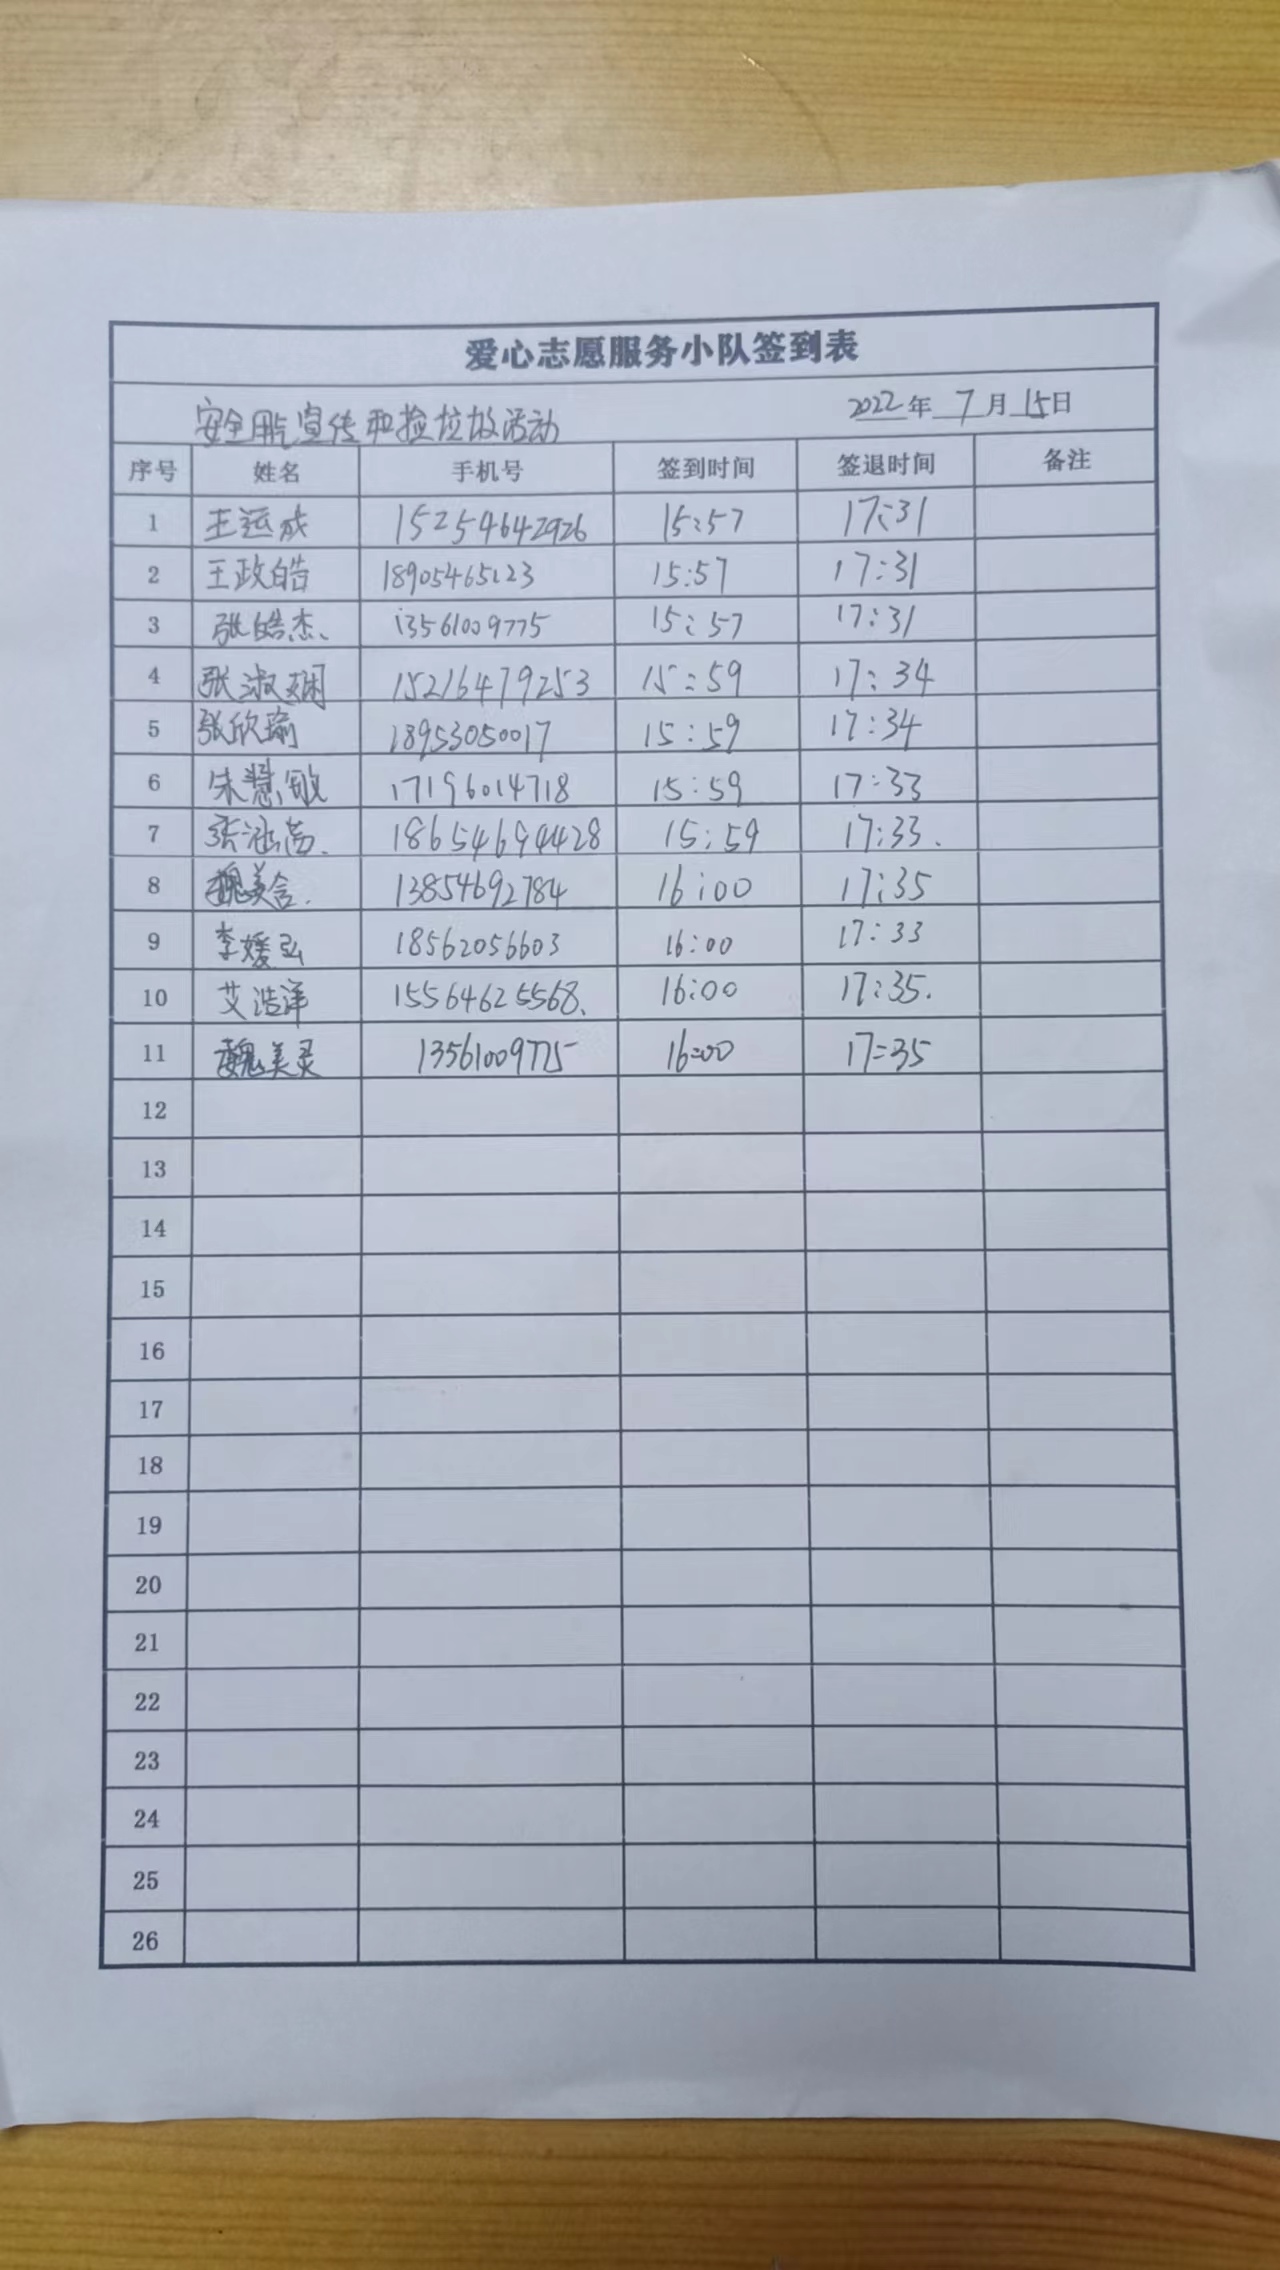 爱心志愿服务小队签到表
安全用气宣传和捡垃圾活动 2022年7月15日
序号 姓名 手机号 签到时间 签退时间 备注
1 王运成 15254642926 15:57 17:31
2 王政皓 18905465123 15:57 17:31
3 张皓杰、 13561009775 15:57 17:31
4 张淑娴 15216479253 15:59 17:34
5 张欣瑜 18953050017 15:59 17:34
6 朱慧敏 17196014718 15:59 17:33
7 张涵 18654694428 15:59 17:33.
8 魏美含. 13854692784 16:00 17:35
9 李媛弘 18562056603 16:00 17:33
10 艾浩洋 15564625568、 16:00 17:35.
11 魏美灵 13561009775 16:00 17=35
12
13
14
15
16
17
18
19
20
21
22
23
24
25
26